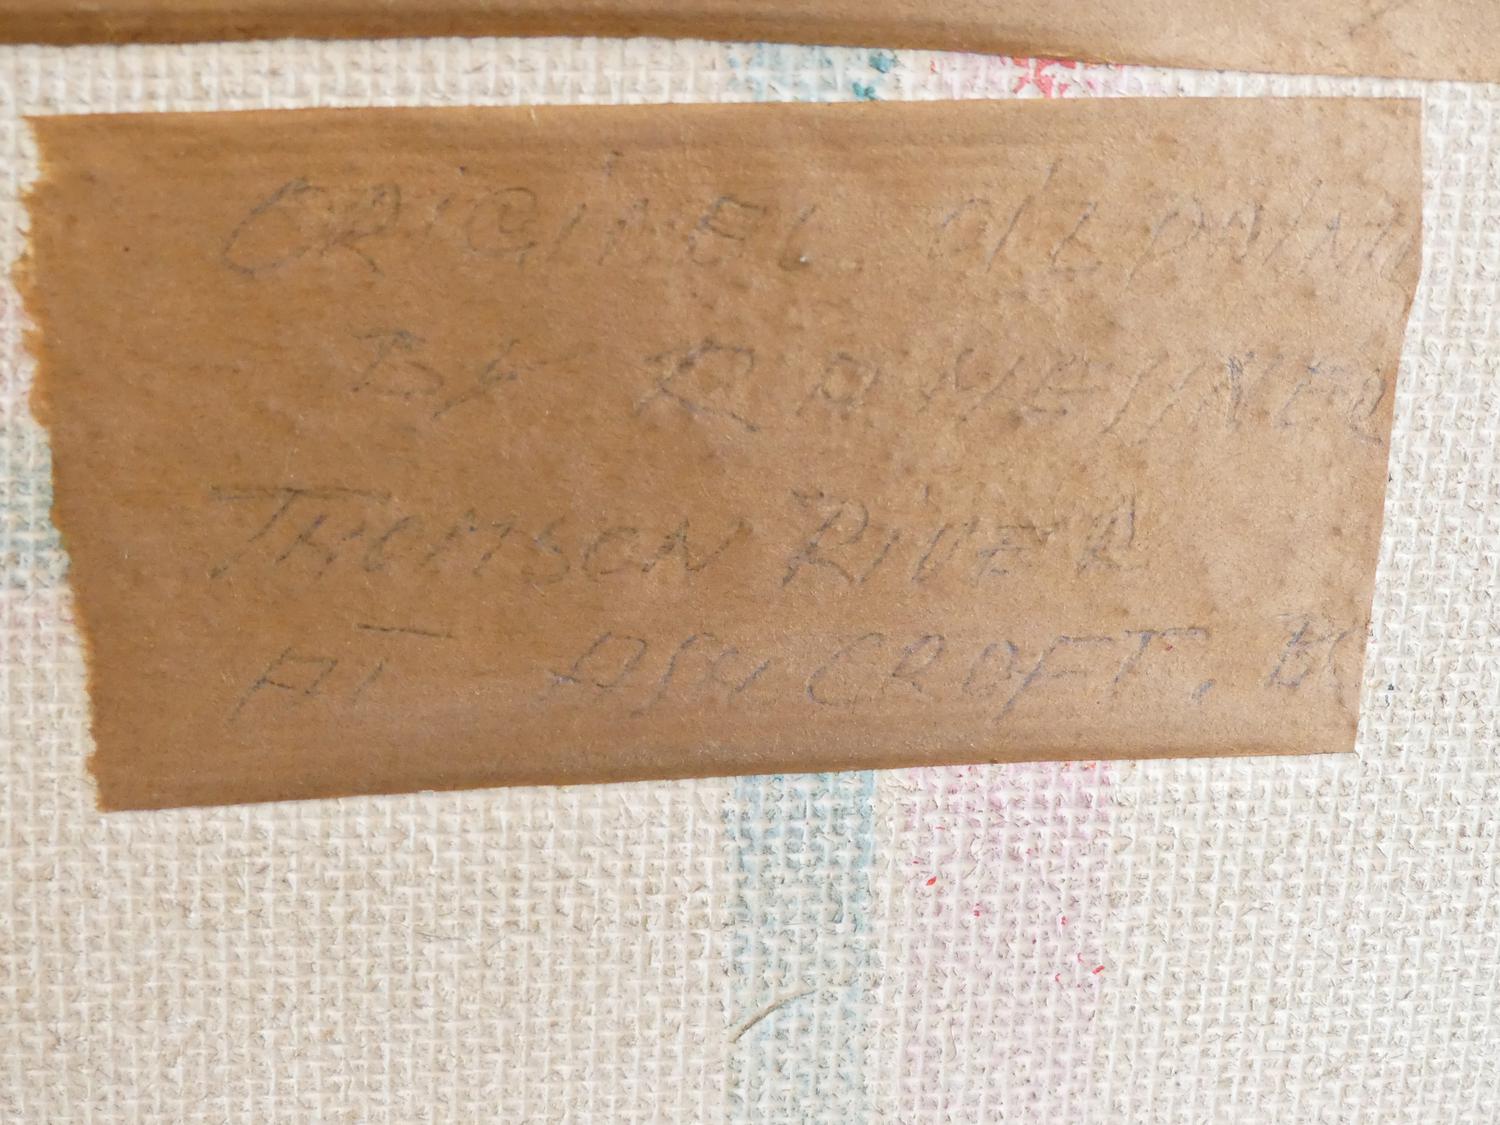 ORIGINEL OIL PAINN
BY R A
THOMSON RIVER
AT ASHCROFT, BC